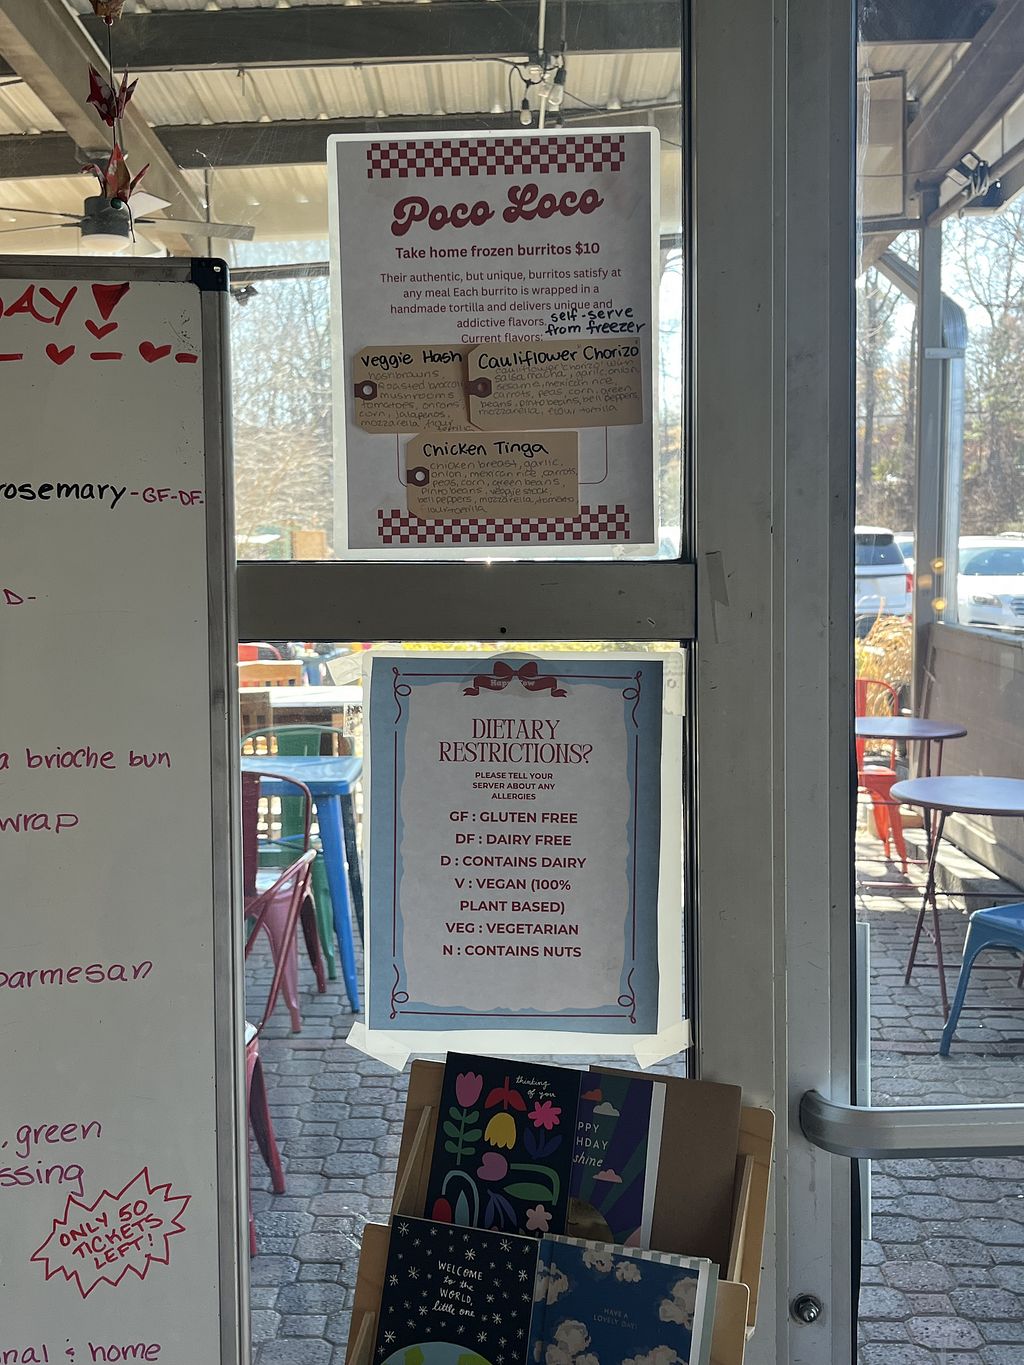 AY!
rosemary-GF-DF-
D-
a brioche bun
wrap
parmesan
, green
ssing
ONLY 50
TICKETS
LEFT!
nal & home
Poco Loco
Take home frozen burritos $10
Their authentic, but unique, burritos satisfy at
any meal Each burrito is wrapped in a
handmade tortilla and delivers unique and
addictive flavors.
self-serve
from freezer
Current flavors:
Veggie Hash
hashbrowns,
Roasted broccoli
mushrooms
tomatoes, onions,
corn, jalapenos,
mozzarella, flour
tortilla
Cauliflower Chorizo
cauliflower chorizo with
salsa macha, garlic, onion,
sesame, mexican rice,
carrots, peas, corn, green
beans, pinto beans, bell peppers,
mozzarella, flour tortilla
Chicken Tinga
chicken breast, garlic,
onion, mexican rice, carrots,
peas, corn, green beans,
pinto beans, veggie stock,
bell peppers, mozzarella, tomato
flour tortilla
DIETARY
RESTRICTIONS?
PLEASE TELL YOUR
SERVER ABOUT ANY
ALLERGIES
GF : GLUTEN FREE
DF : DAIRY FREE
D : CONTAINS DAIRY
V : VEGAN (100%
PLANT BASED)
VEG : VEGETARIAN
N : CONTAINS NUTS
thinking
of you
PPY
HDAY
shine
WELCOME
to the
WORLD,
little one
HAVE A
LOVELY DAY!